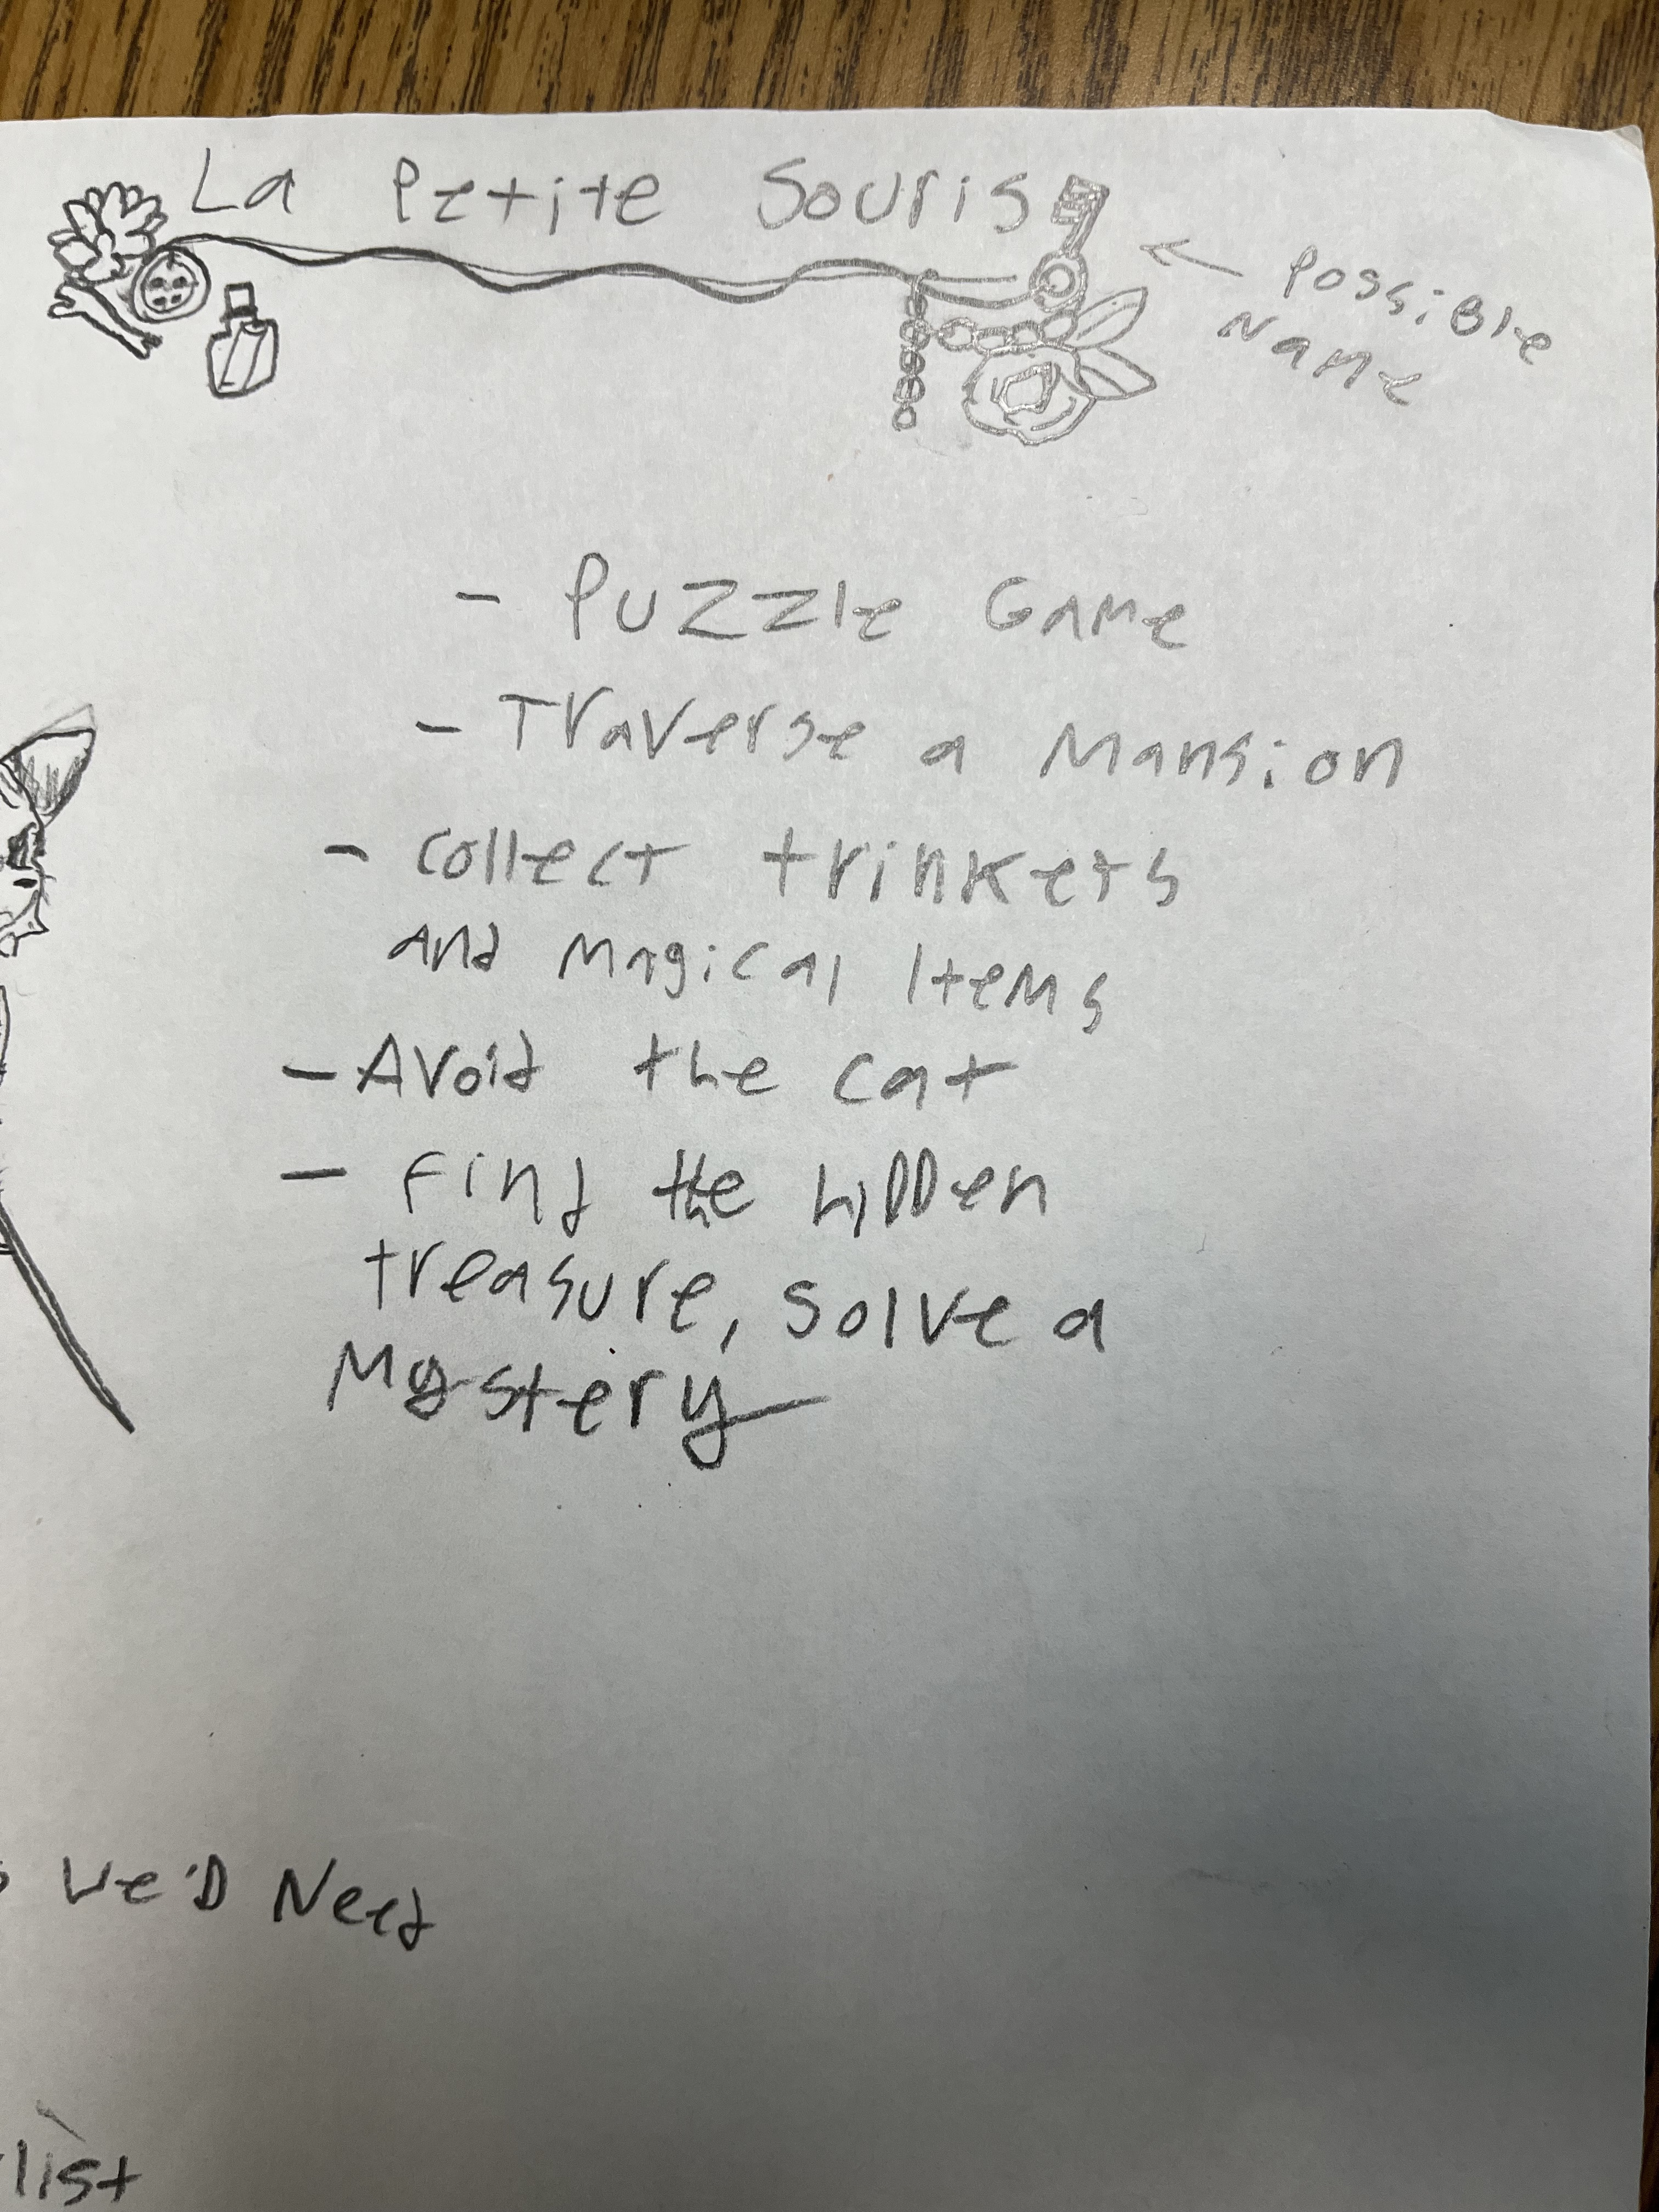 La Petite Souris
← Possible
Name
- Puzzle Game
- Traverse a Mansion
- Collect trinkets
and Magical Items
- Avoid the cat
- Find the hidden
treasure, solve a
Mystery
We'd Need
list